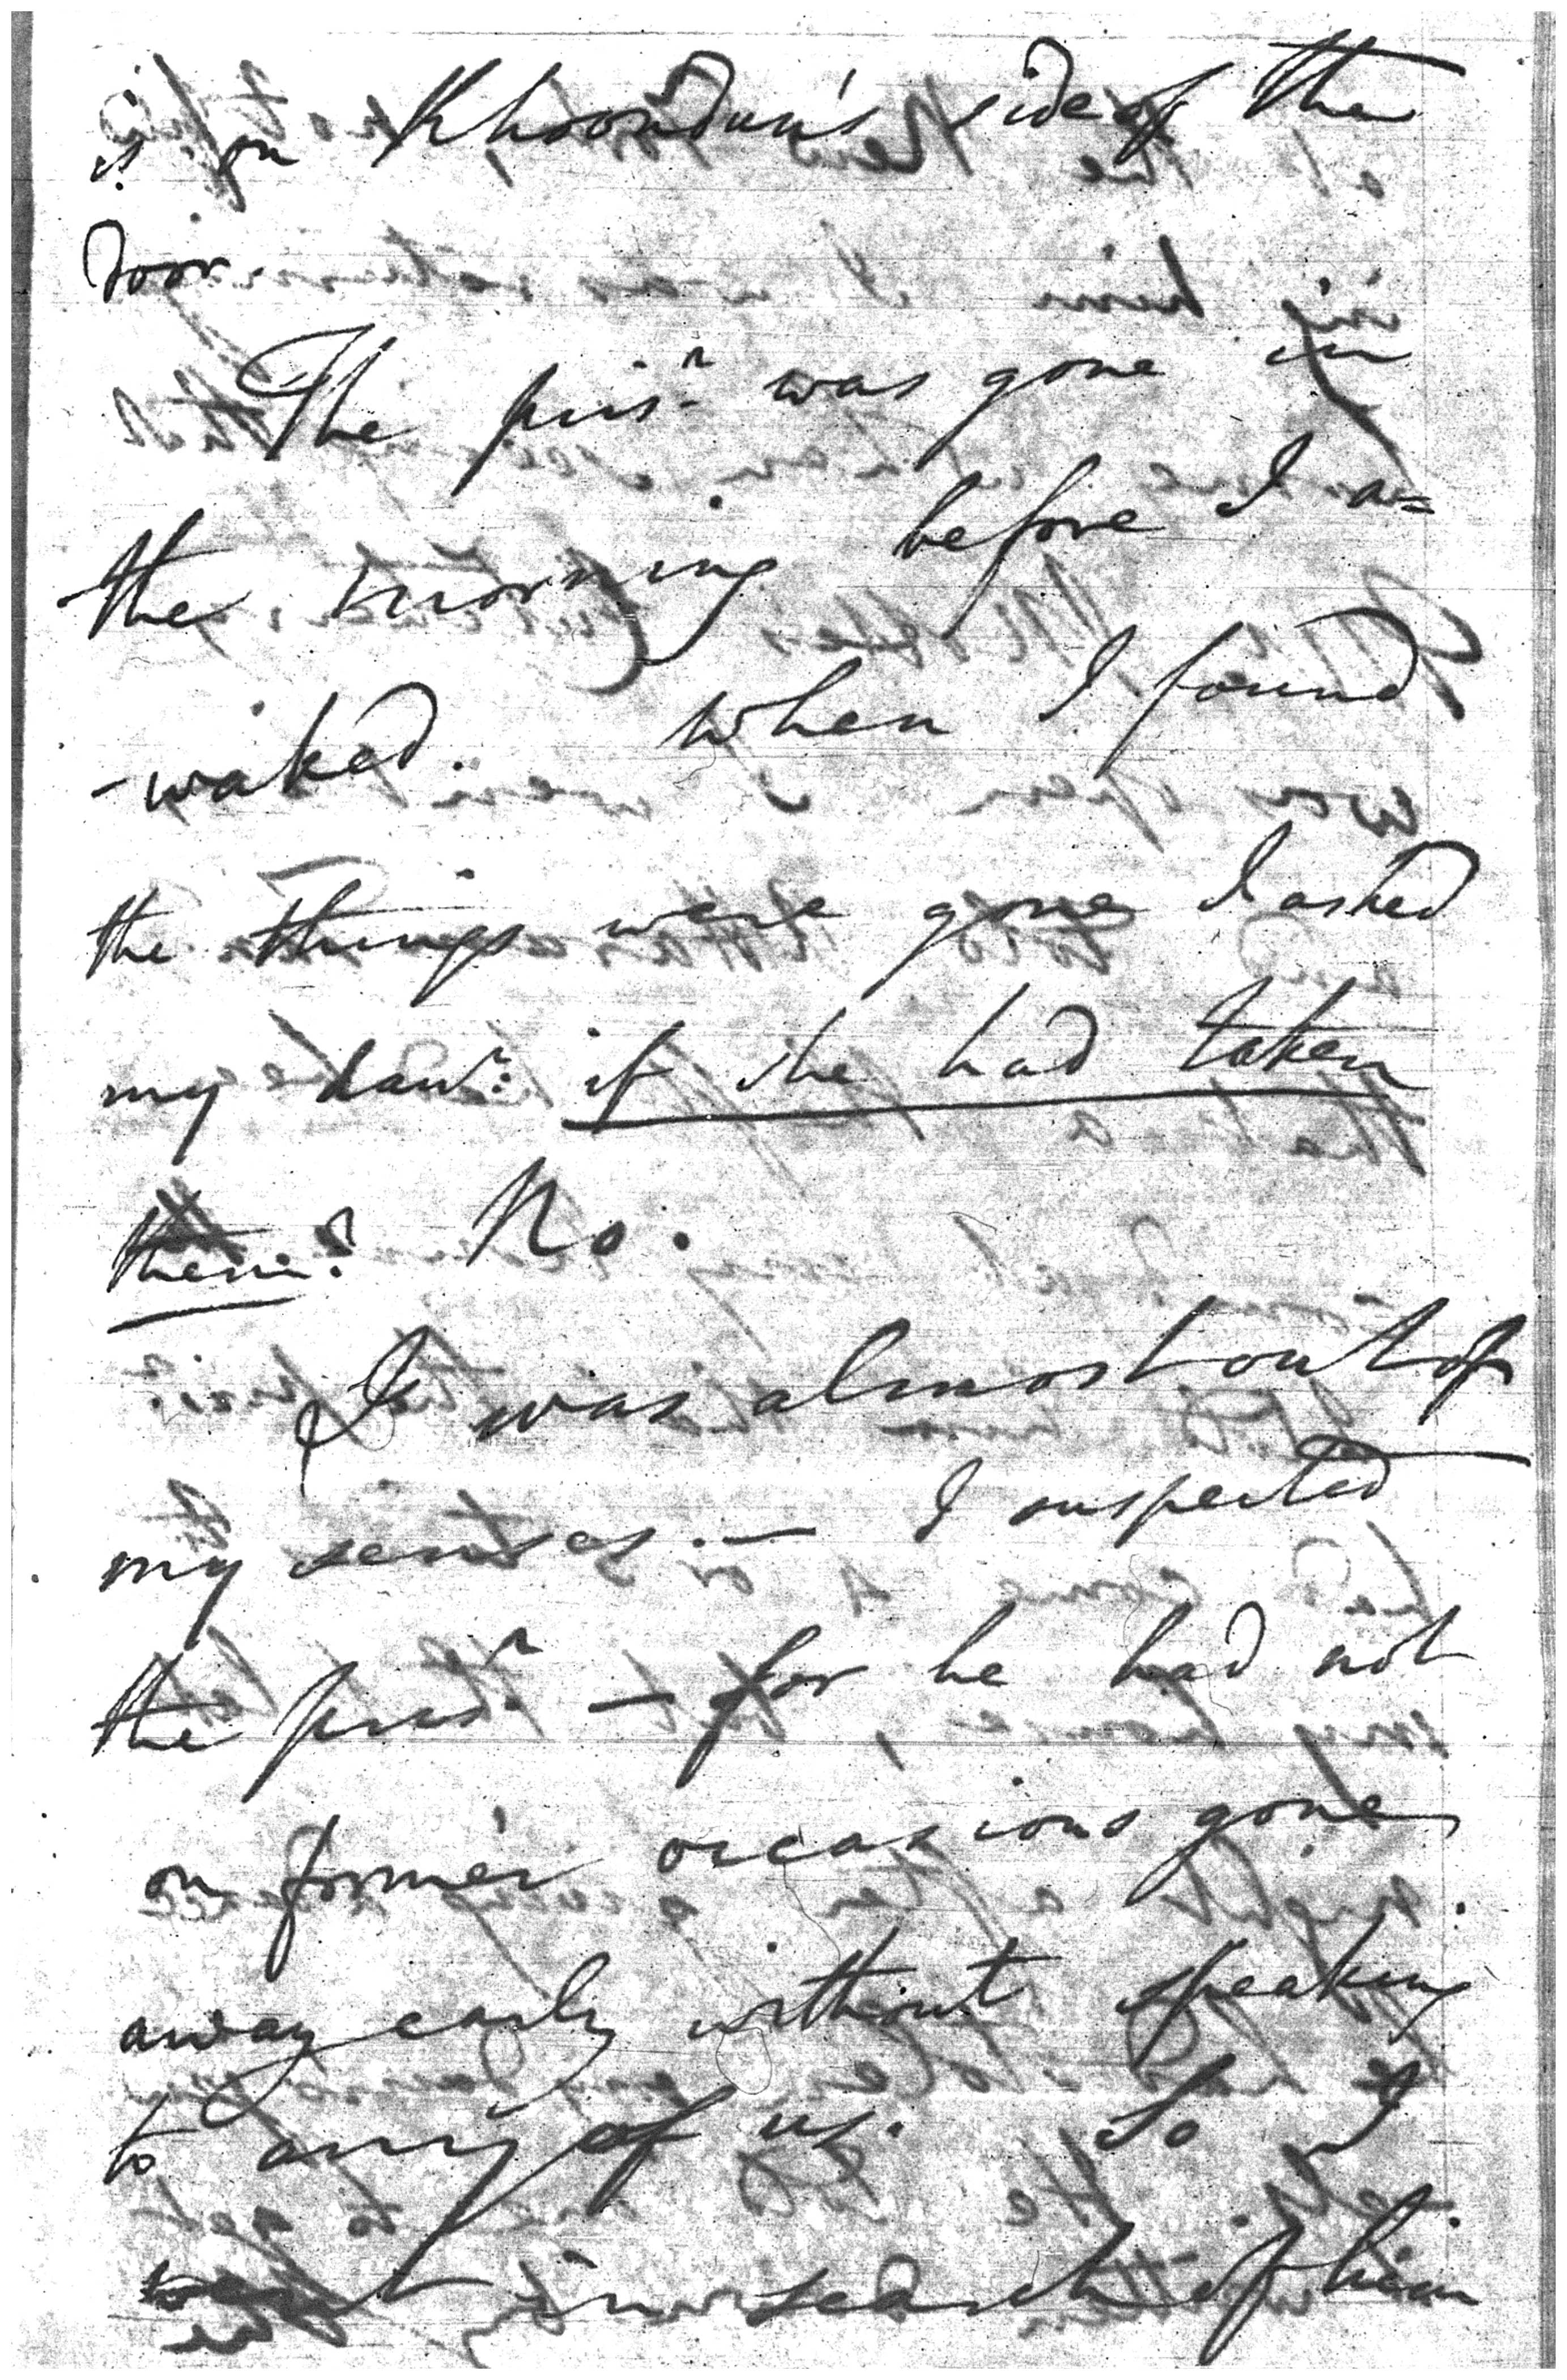 is on Khoordun's side of the
door.
The pris.r was gone in
the morning before I a=
-waked. When I found
the things were gone I asked
my daur: if she had taken
them? No.
I was almost out of
my senses. — I suspected
the pris.r — for he had not
on former occasions gone
away early without speaking
to any of us. So I
went in search of him